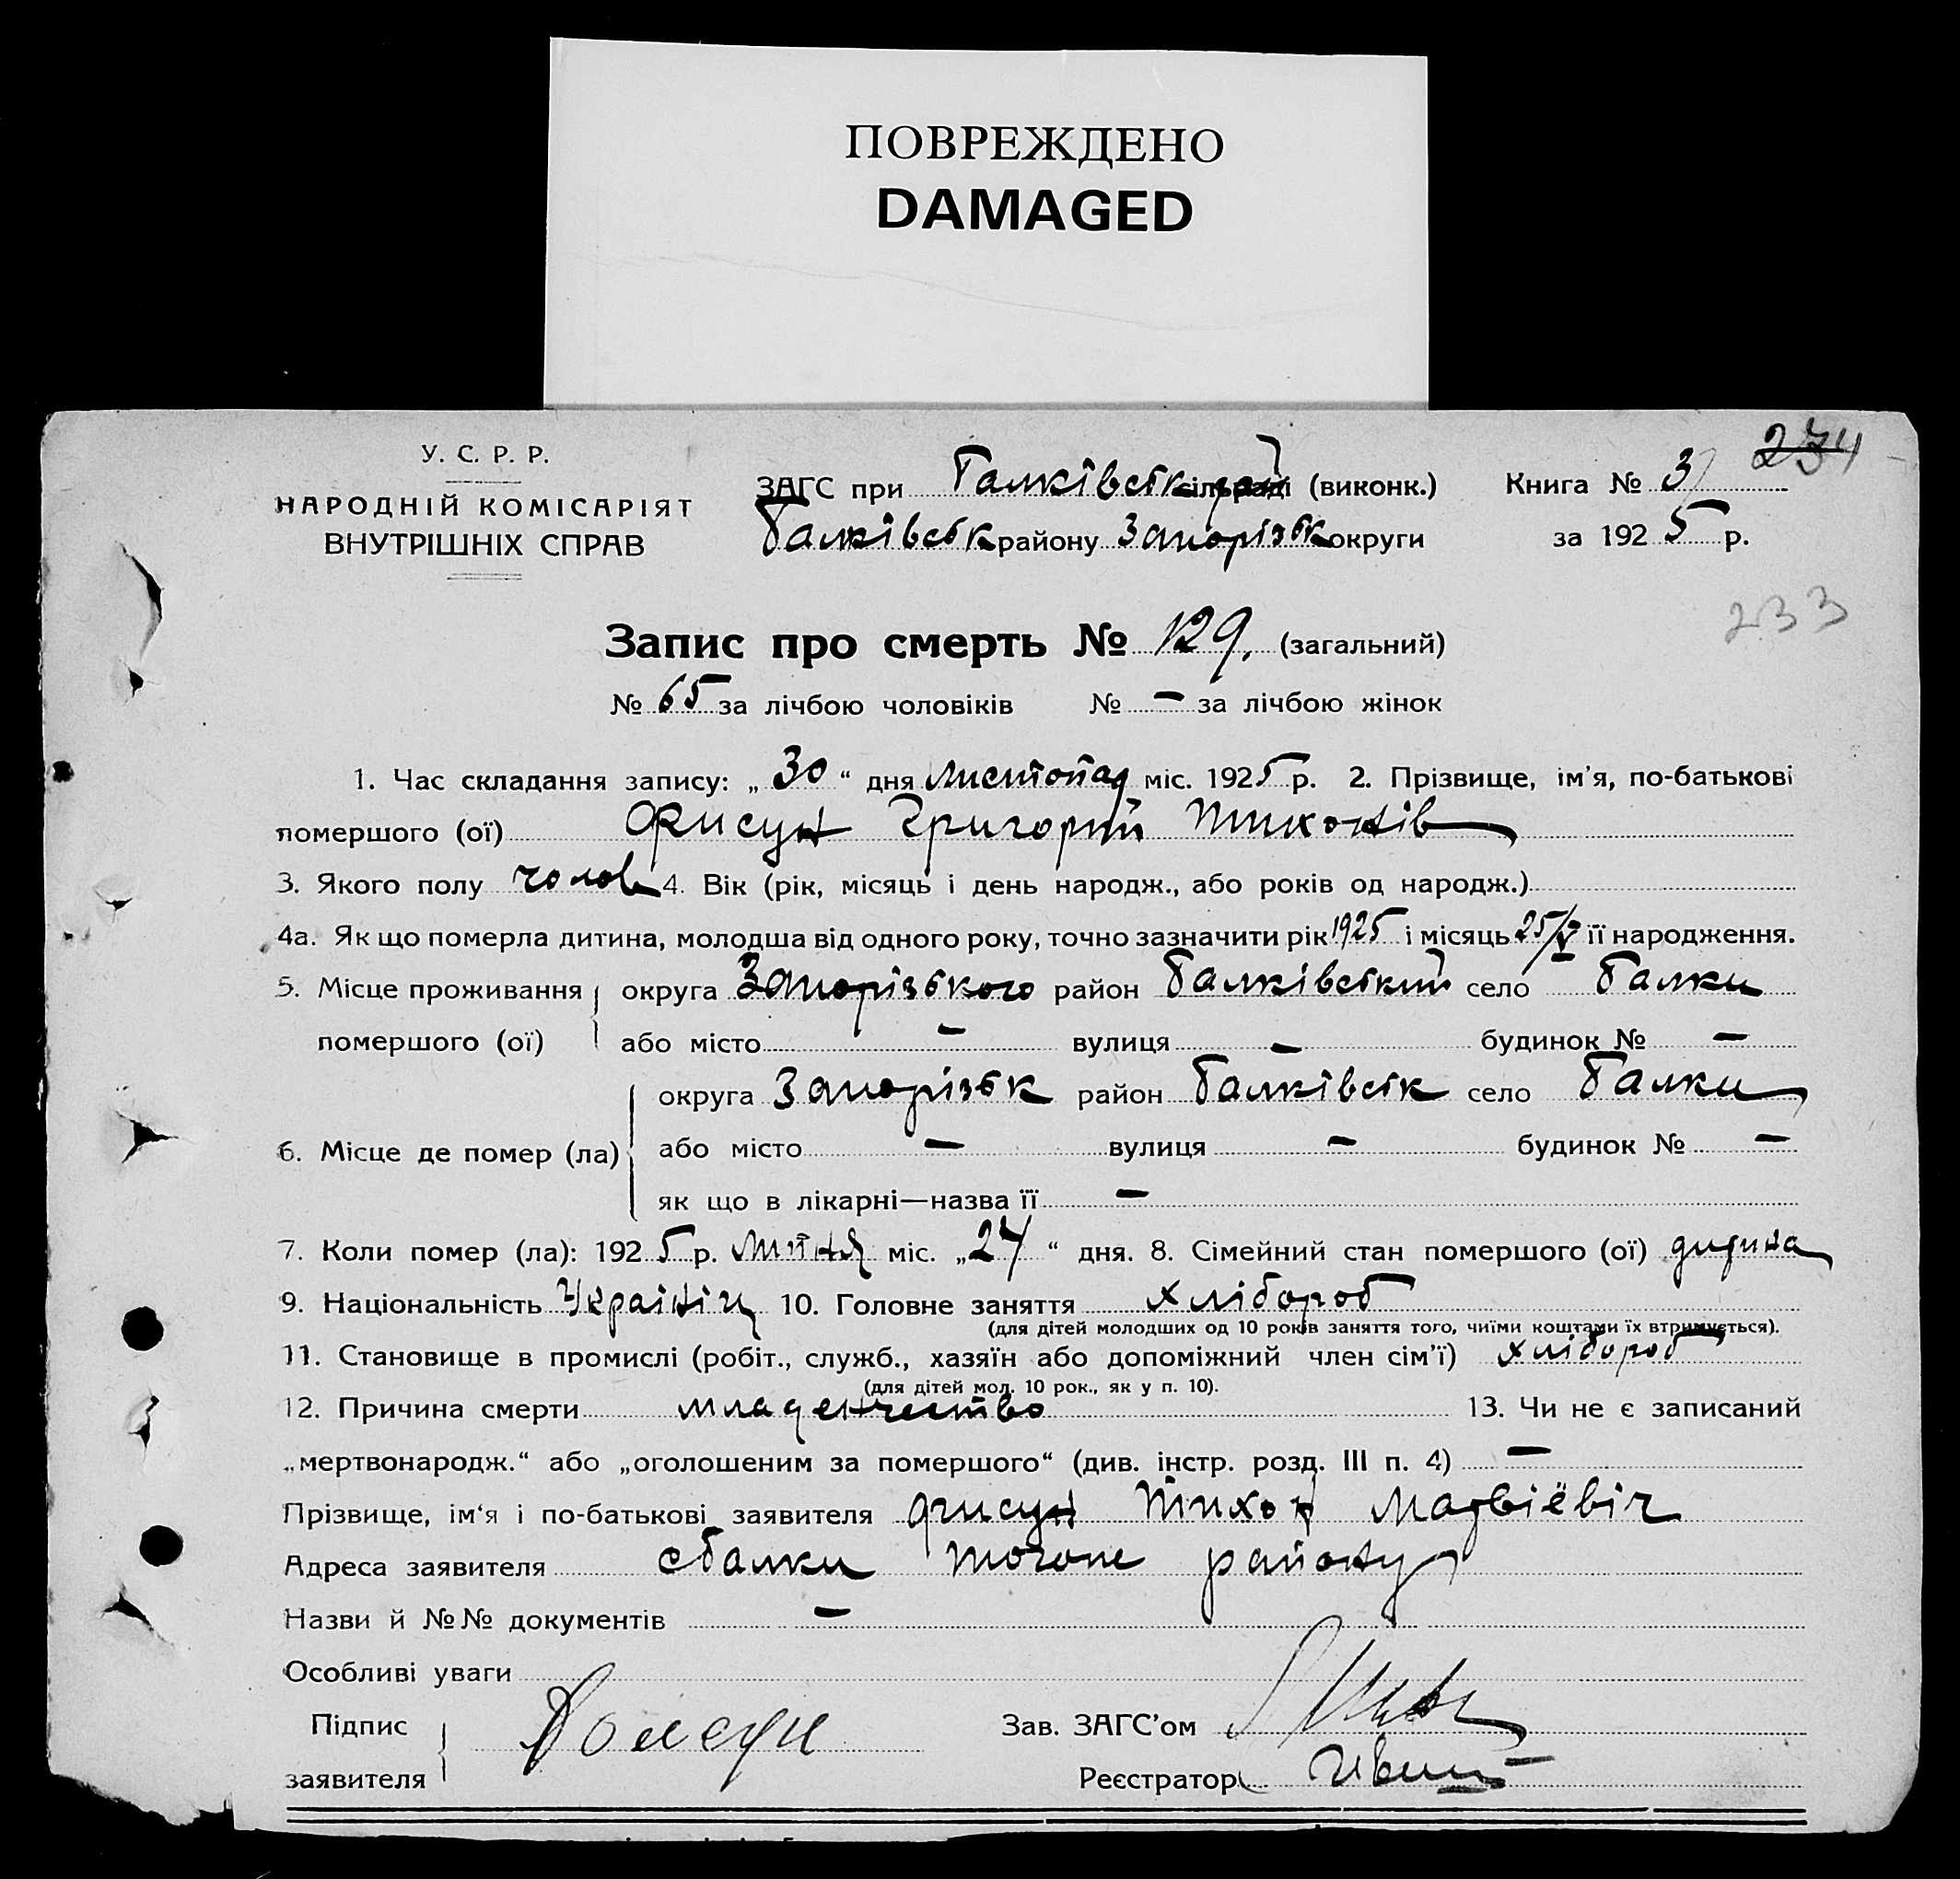 ПОВРЕЖДЕНО
DAMAGED
274
У. С. Р. Р.
НАРОДНІЙ КОМІСАРІЯТ
ВНУТРІШНІХ СПРАВ
ЗАГС при Балківськ сільраді (виконк.)
Балківськ району Запорізьк округи
Книга № 3
за 1925 р.
233
Запис про смерть № 129. (загальний)
№ 65 за лічбою чоловіків № — за лічбою жінок
1. Час складання запису: „ 30 “ дня листопад міс. 1925 р. 2. Прізвище, ім'я, по-батькові
помершого (ої) Фисун Григорій Тихонів
3. Якого полу чолов 4. Вік (рік, місяць і день народж., або років од народж.)
4а. Як що померла дитина, молодша від одного року, точно зазначити рік 1925 і місяць 25/V її народження.
5. Місце проживання округа Запорізького район Балківський село Балки
помершого (ої) або місто — вулиця — будинок № —
округа Запорізьк район Балківськ село Балки
6. Місце де помер (ла) або місто — вулиця — будинок № —
як що в лікарні—назва її —
7. Коли помер (ла): 1925 р. липня міс. „24“ дня. 8. Сімейний стан помершого (ої) дитина
9. Національність Українец 10. Головне заняття хлібороб
(для дітей молодших од 10 років заняття того, чиїми коштами їх втримується).
11. Становище в промислі (робіт., служб., хазяїн або допоміжний член сім'ї) хлібороб
(для дітей мол. 10 рок., як у п. 10).
12. Причина смерти младенчество 13. Чи не є записаний
„мертвонародж.“ або „оголошеним за помершого“ (див. інстр. розд. III п. 4) —
Прізвище, ім'я і по-батькові заявителя Фисун Тихон Мадвіёвіч
Адреса заявителя с Балки тогоже району
Назви й №№ документів —
Особливі уваги
Підпис
заявителя
Зав. ЗАГС'ом
Реєстратор